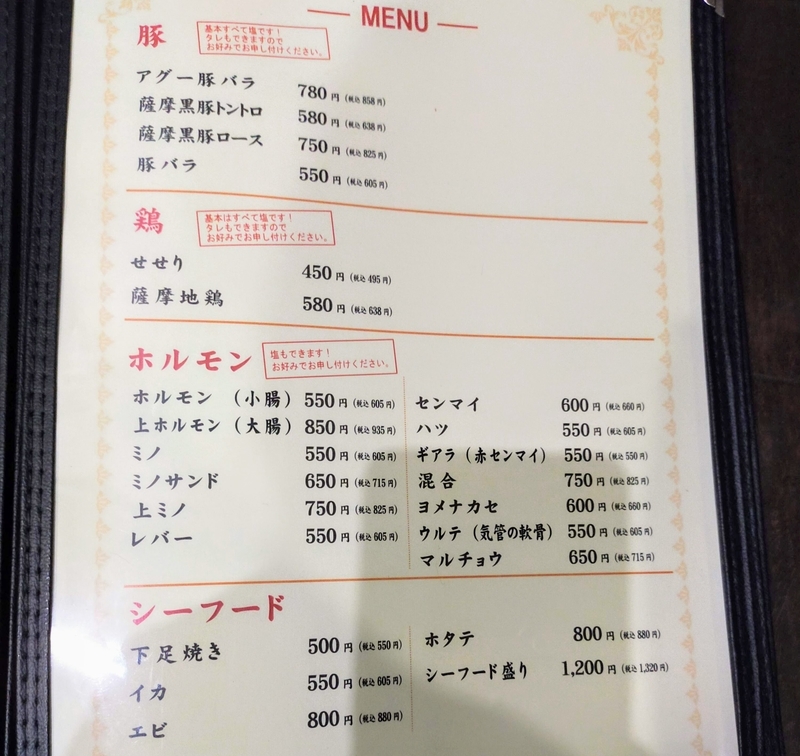 MENU
豚
基本すべて塩です！
タレもできますので
お好みでお申し付けください。
アグー豚バラ 780円（税込858円）
薩摩黒豚トントロ 580円（税込638円）
薩摩黒豚ロース 750円（税込825円）
豚バラ 550円（税込605円）
鶏
基本はすべて塩です！
タレもできますので
お好みでお申し付けください。
せせり 450円（税込495円）
薩摩地鶏 580円（税込638円）
ホルモン
塩もできます！
お好みでお申し付けください。
ホルモン（小腸） 550円（税込605円）
上ホルモン（大腸） 850円（税込935円）
ミノ 550円（税込605円）
ミノサンド 650円（税込715円）
上ミノ 750円（税込825円）
レバー 550円（税込605円）
センマイ 600円（税込660円）
ハツ 550円（税込605円）
ギアラ（赤センマイ） 550円（税込550円）
混合 750円（税込825円）
ヨメナカセ 600円（税込660円）
ウルテ（気管の軟骨） 550円（税込605円）
マルチョウ 650円（税込715円）
シーフード
下足焼き 500円（税込550円）
イカ 550円（税込605円）
エビ 800円（税込880円）
ホタテ 800円（税込880円）
シーフード盛り 1,200円（税込1,320円）